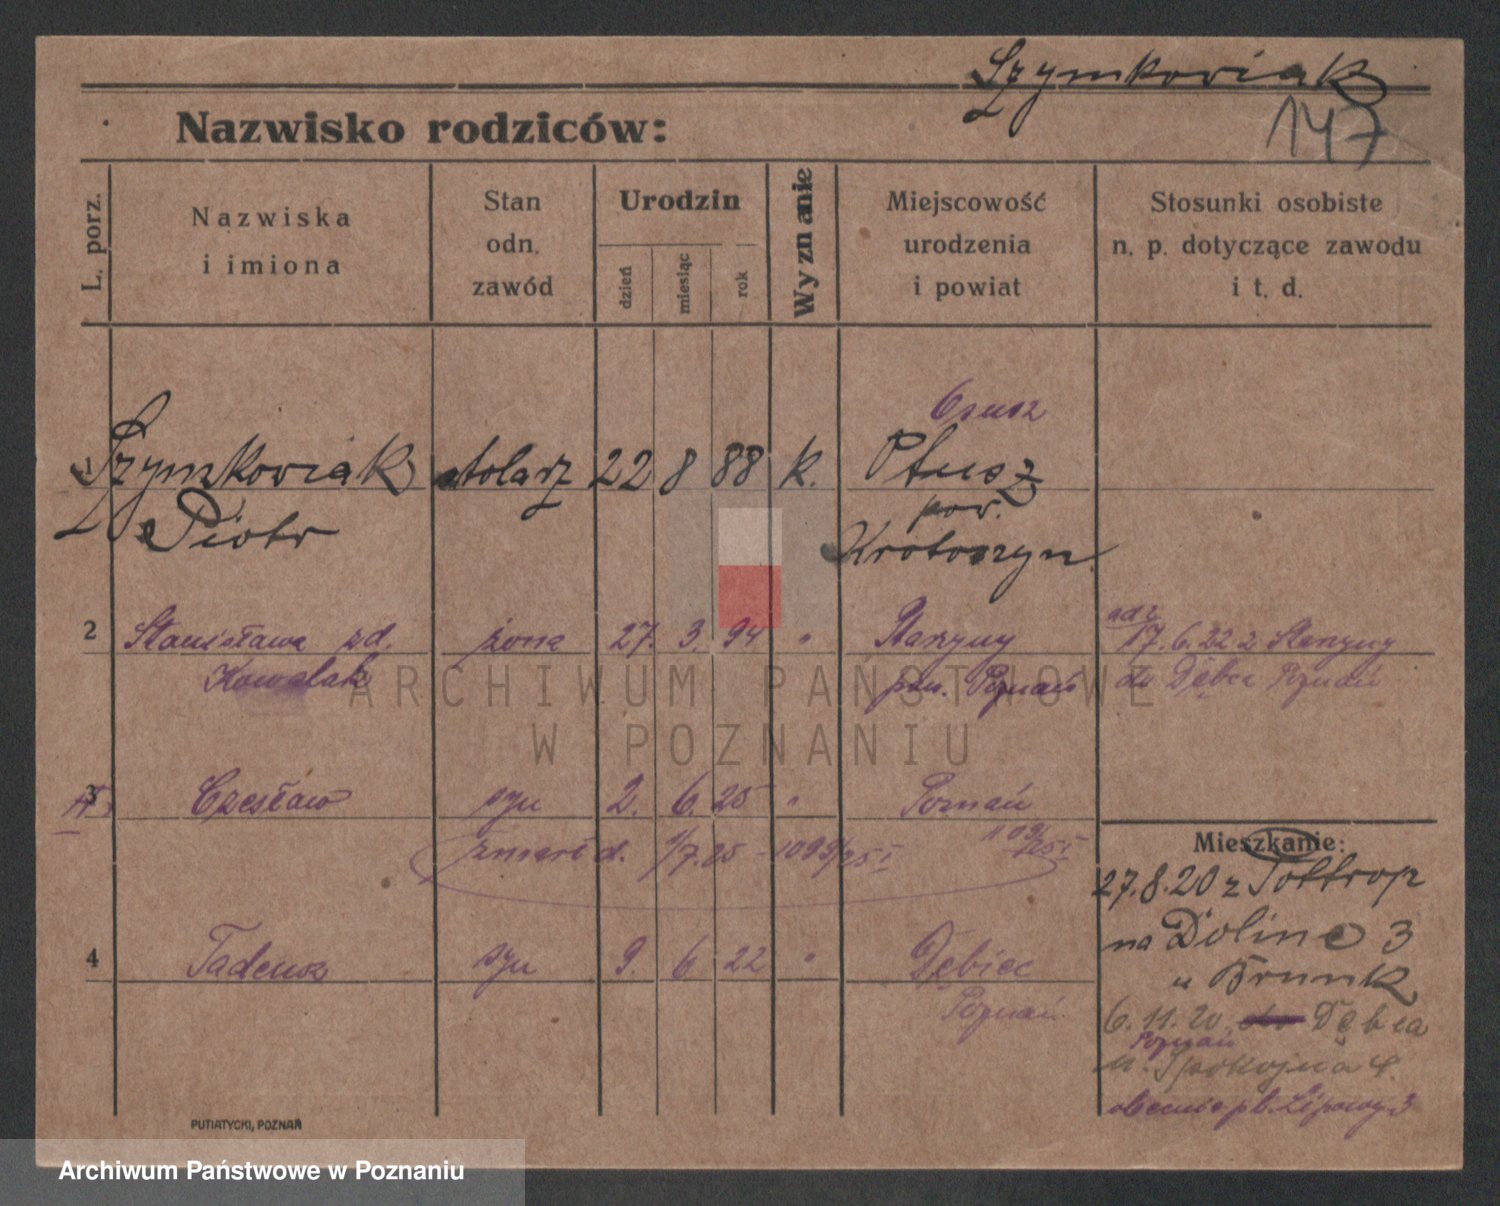 Szymkowiak
147
Nazwisko rodziców:
L. porz.
Nazwiska
i imiona
Stan
odn.
zawód
Urodzin
dzień
miesiąc
rok
Wyznanie
Miejscowość
urodzenia
i powiat
Stosunki osobiste
n. p. dotyczące zawodu
i t. d.
1 Szymkowiak stolarz 22 8 88 k.
Piotr pow.
Krotoszyn
2 Stanisława zd. żona 27. 3. 94 "
17.6.22 z
Kowalak pow. Poznań
do Dębca Poznań
3 Czesław syn 2. 6. 25 " Poznań
zmarł d. 1/7.25 - 1099/25 I
4 Tadeusz syn 9. 6 22 " Dębiec
Poznań
Mieszkanie:
27.8.20 z
na Dolinę 3
u Brunk
6.11.20 Dębca
Poznań
Spokojna 4
obecnie
PUTIATYCKI, POZNAŃ
ARCHIWUM PAŃSTWOWE
W POZNANIU
Archiwum Państwowe w Poznaniu